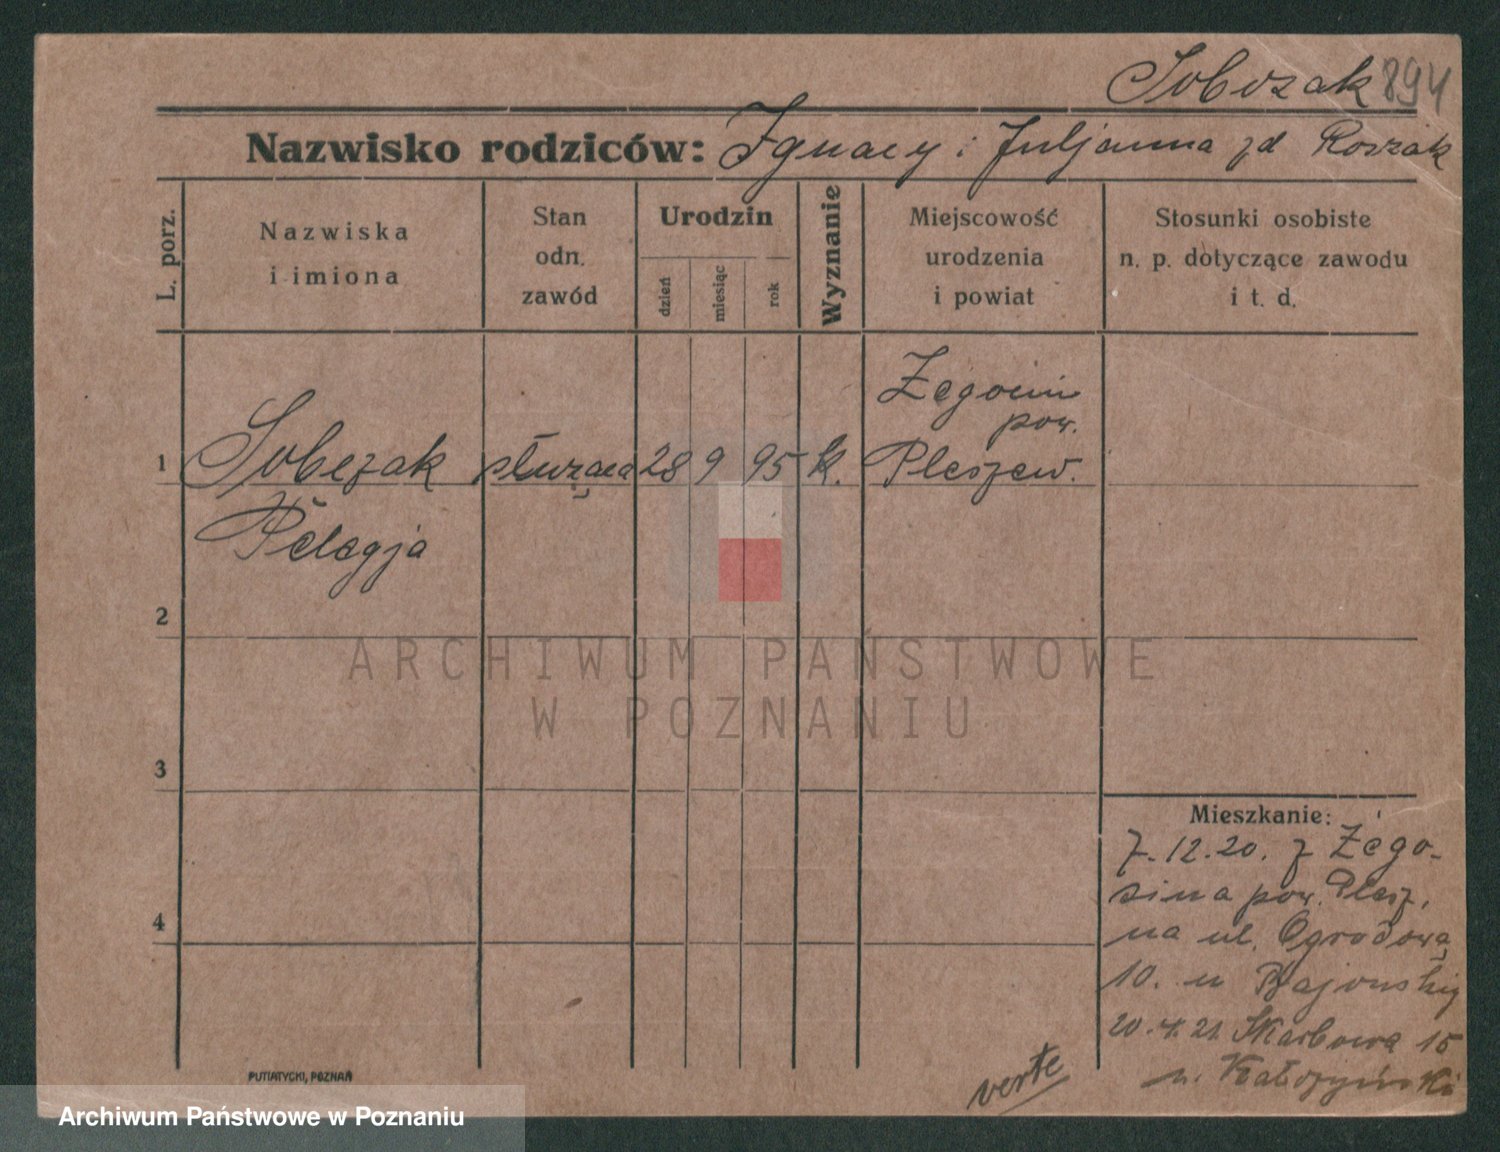 Sobczak 894
Nazwisko rodziców: Ignacy i Juljanna zd Roszak
L. porz.
Nazwiska
i imiona
Stan
odn.
zawód
Urodzin
dzień
miesiąc
rok
Wyznanie
Miejscowość
urodzenia
i powiat
Stosunki osobiste
n. p. dotyczące zawodu
i t. d.
Żegocin
pow.
1 Sobczak służąca 28 9 95 k. Pleszew.
Pelagja
2
ARCHIWUM PAŃSTWOWE
W POZNANIU
3
4
Mieszkanie:
7.12.20. z Żego-
cina pow. Plesz.
na ul. Ogrodową
10. u
20.4.21 Skarbowa 15
u.
verte
PUTIATYCKI, POZNAŃ
Archiwum Państwowe w Poznaniu